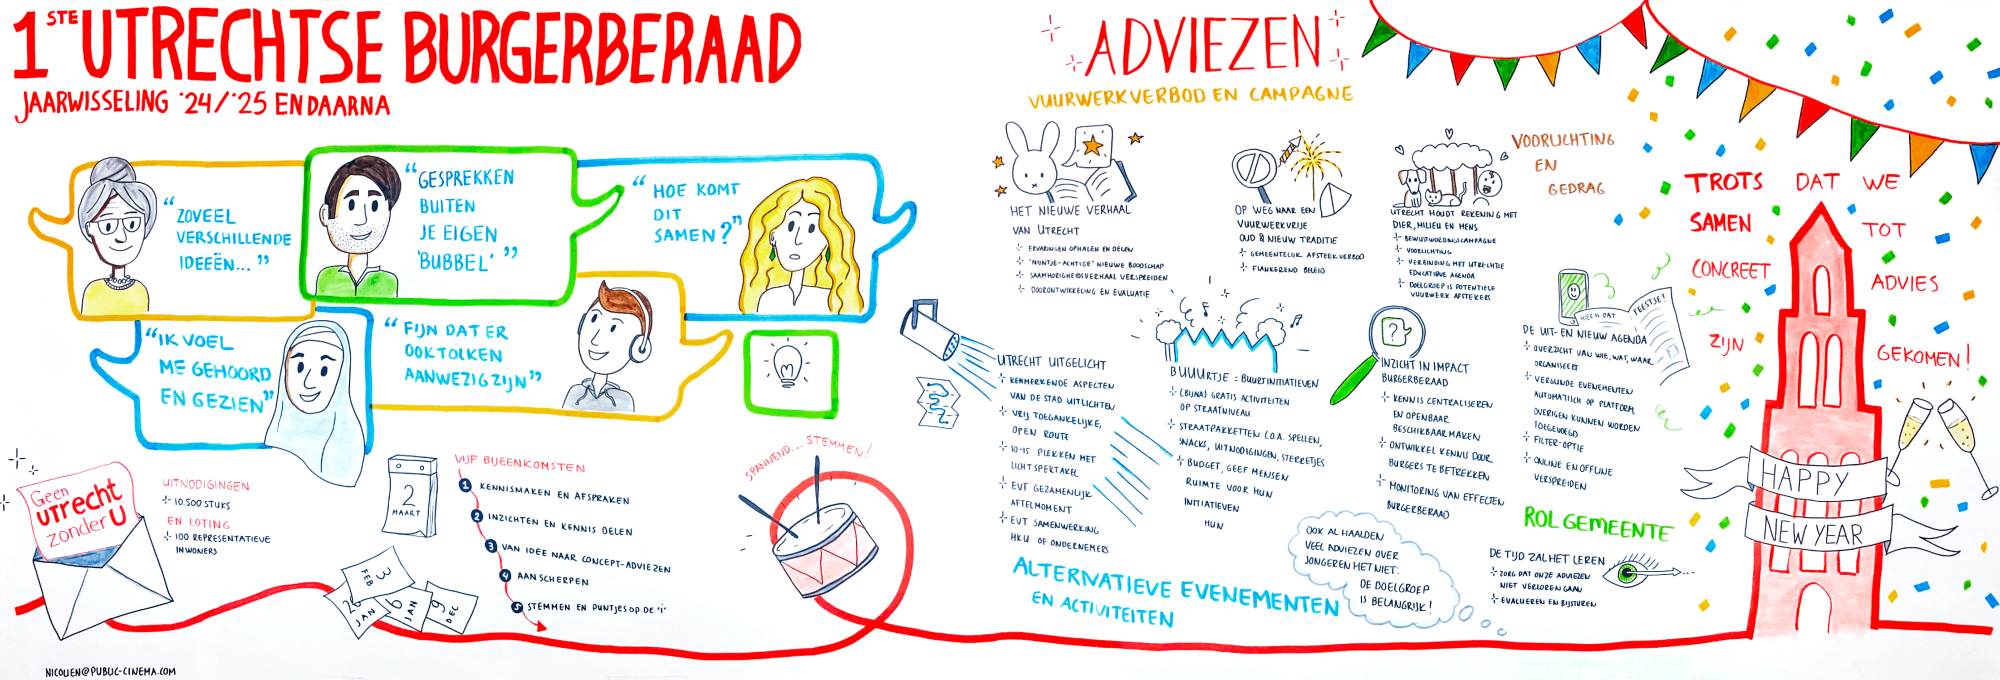 1STE UTRECHTSE BURGERBERAAD
JAARWISSELING '24/'25 EN DAARNA
"ZOVEEL
VERSCHILLENDE
IDEEËN..."
"GESPREKKEN
BUITEN
JE EIGEN
'BUBBEL'"
"HOE KOMT
DIT
SAMEN?"
"IK VOEL
ME GEHOORD
EN GEZIEN"
"FIJN DAT ER
OOK TOLKEN
AANWEZIG ZIJN"
Geen
Utrecht
zonder U
UITNODIGINGEN
10.500 STUKS
EN LOTING
100 REPRESENTATIEVE
INWONERS
2
MAART
3
FEB
26
JAN
6
JAN
9
DEC
VIJF BIJEENKOMSTEN
1 KENNISMAKEN EN AFSPRAKEN
2 INZICHTEN EN KENNIS DELEN
3 VAN IDEE NAAR CONCEPT-ADVIEZEN
4 AANSCHERPEN
5 STEMMEN EN PUNTJES OP DE 'i'
SPANNEND... STEMMEN!
NICOLIEN@PUBLIC-CINEMA.COM
ADVIEZEN
VUURWERKVERBOD EN CAMPAGNE
HET NIEUWE VERHAAL
VAN UTRECHT
ERVARINGEN OPHALEN EN DELEN
'NIJNTJE-ACHTIGE' NIEUWE BOODSCHAP
SAAMHORIGHEIDSVERHAAL VERSPREIDEN
DOORONTWIKKELING EN EVALUATIE
OP WEG NAAR EEN
VUURWERKVRIJE
OUD & NIEUW TRADITIE
GEMEENTELIJK AFSTEEKVERBOD
FLANKEREND BELEID
UTRECHT HOUDT REKENING MET
DIER, MILIEU EN MENS
BEWUSTWORDINGSCAMPAGNE
VOORLICHTING
VERBINDING MET UTRECHTSE
EDUCATIEVE AGENDA
DOELGROEP IS POTENTIELE
VUURWERK AFSTEKERS
VOORLICHTING
EN
GEDRAG
HIER IS DAT
FEESTJE!
DE UIT- EN NIEUW AGENDA
OVERZICHT VAN WIE, WAT, WAAR
ORGANISEERT
VERGUNDE EVENEMENTEN
AUTOMATISCH OP PLATFORM,
OVERIGEN KUNNEN WORDEN
TOEGEVOEGD
FILTER-OPTIE
ONLINE EN OFFLINE
VERSPREIDEN
UTRECHT UITGELICHT
KENMERKENDE ASPECTEN
VAN DE STAD UITLICHTEN
VRIJ TOEGANKELIJKE,
OPEN ROUTE
10-15 PLEKKEN MET
LICHTSPEKTAKEL
EVT GEZAMENLIJK
AFTELMOMENT
EVT SAMENWERKING
HKU OF ONDERNEMERS
BUUURTJE = BUURTINITIATIEVEN
(BIJNA) GRATIS ACTIVITEITEN
OP STRAATNIVEAU
STRAATPAKKETTEN (O.A. SPELLEN,
SNACKS, UITNODIGINGEN, STERRETJES
BUDGET, GEEF MENSEN
RUIMTE VOOR HUN
INITIATIEVEN
HUN
?
INZICHT IN IMPACT
BURGERBERAAD
KENNIS CENTRALISEREN
EN OPENBAAR
BESCHIKBAAR MAKEN
ONTWIKKEL KENNIS DOOR
BURGERS TE BETREKKEN
MONITORING VAN EFFECTEN
BURGERBERAAD
ALTERNATIEVE EVENEMENTEN
EN ACTIVITEITEN
OOK AL HAALDEN
VEEL ADVIEZEN OVER
JONGEREN HET NIET:
DE DOELGROEP
IS BELANGRIJK!
ROL GEMEENTE
DE TIJD ZAL HET LEREN
ZORG DAT ONZE ADVIEZEN
NIET VERLOREN GAAN
EVALUEREN EN BIJSTUREN
TROTS DAT WE
SAMEN TOT
CONCREET ADVIES
ZIJN GEKOMEN!
HAPPY
NEW YEAR